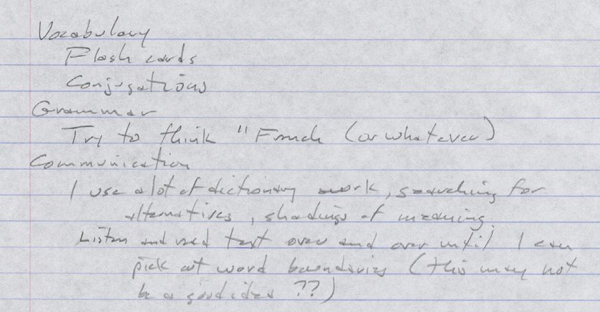 Vocabulary
Flash cards
Conjugations
Grammar
Try to think "French (or whatever)
Communication
I use a lot of dictionary work, searching for
alternatives, shadings of meaning.
Listen and read text over and over until I can
pick out word boundaries (this may not
be a good idea ??)